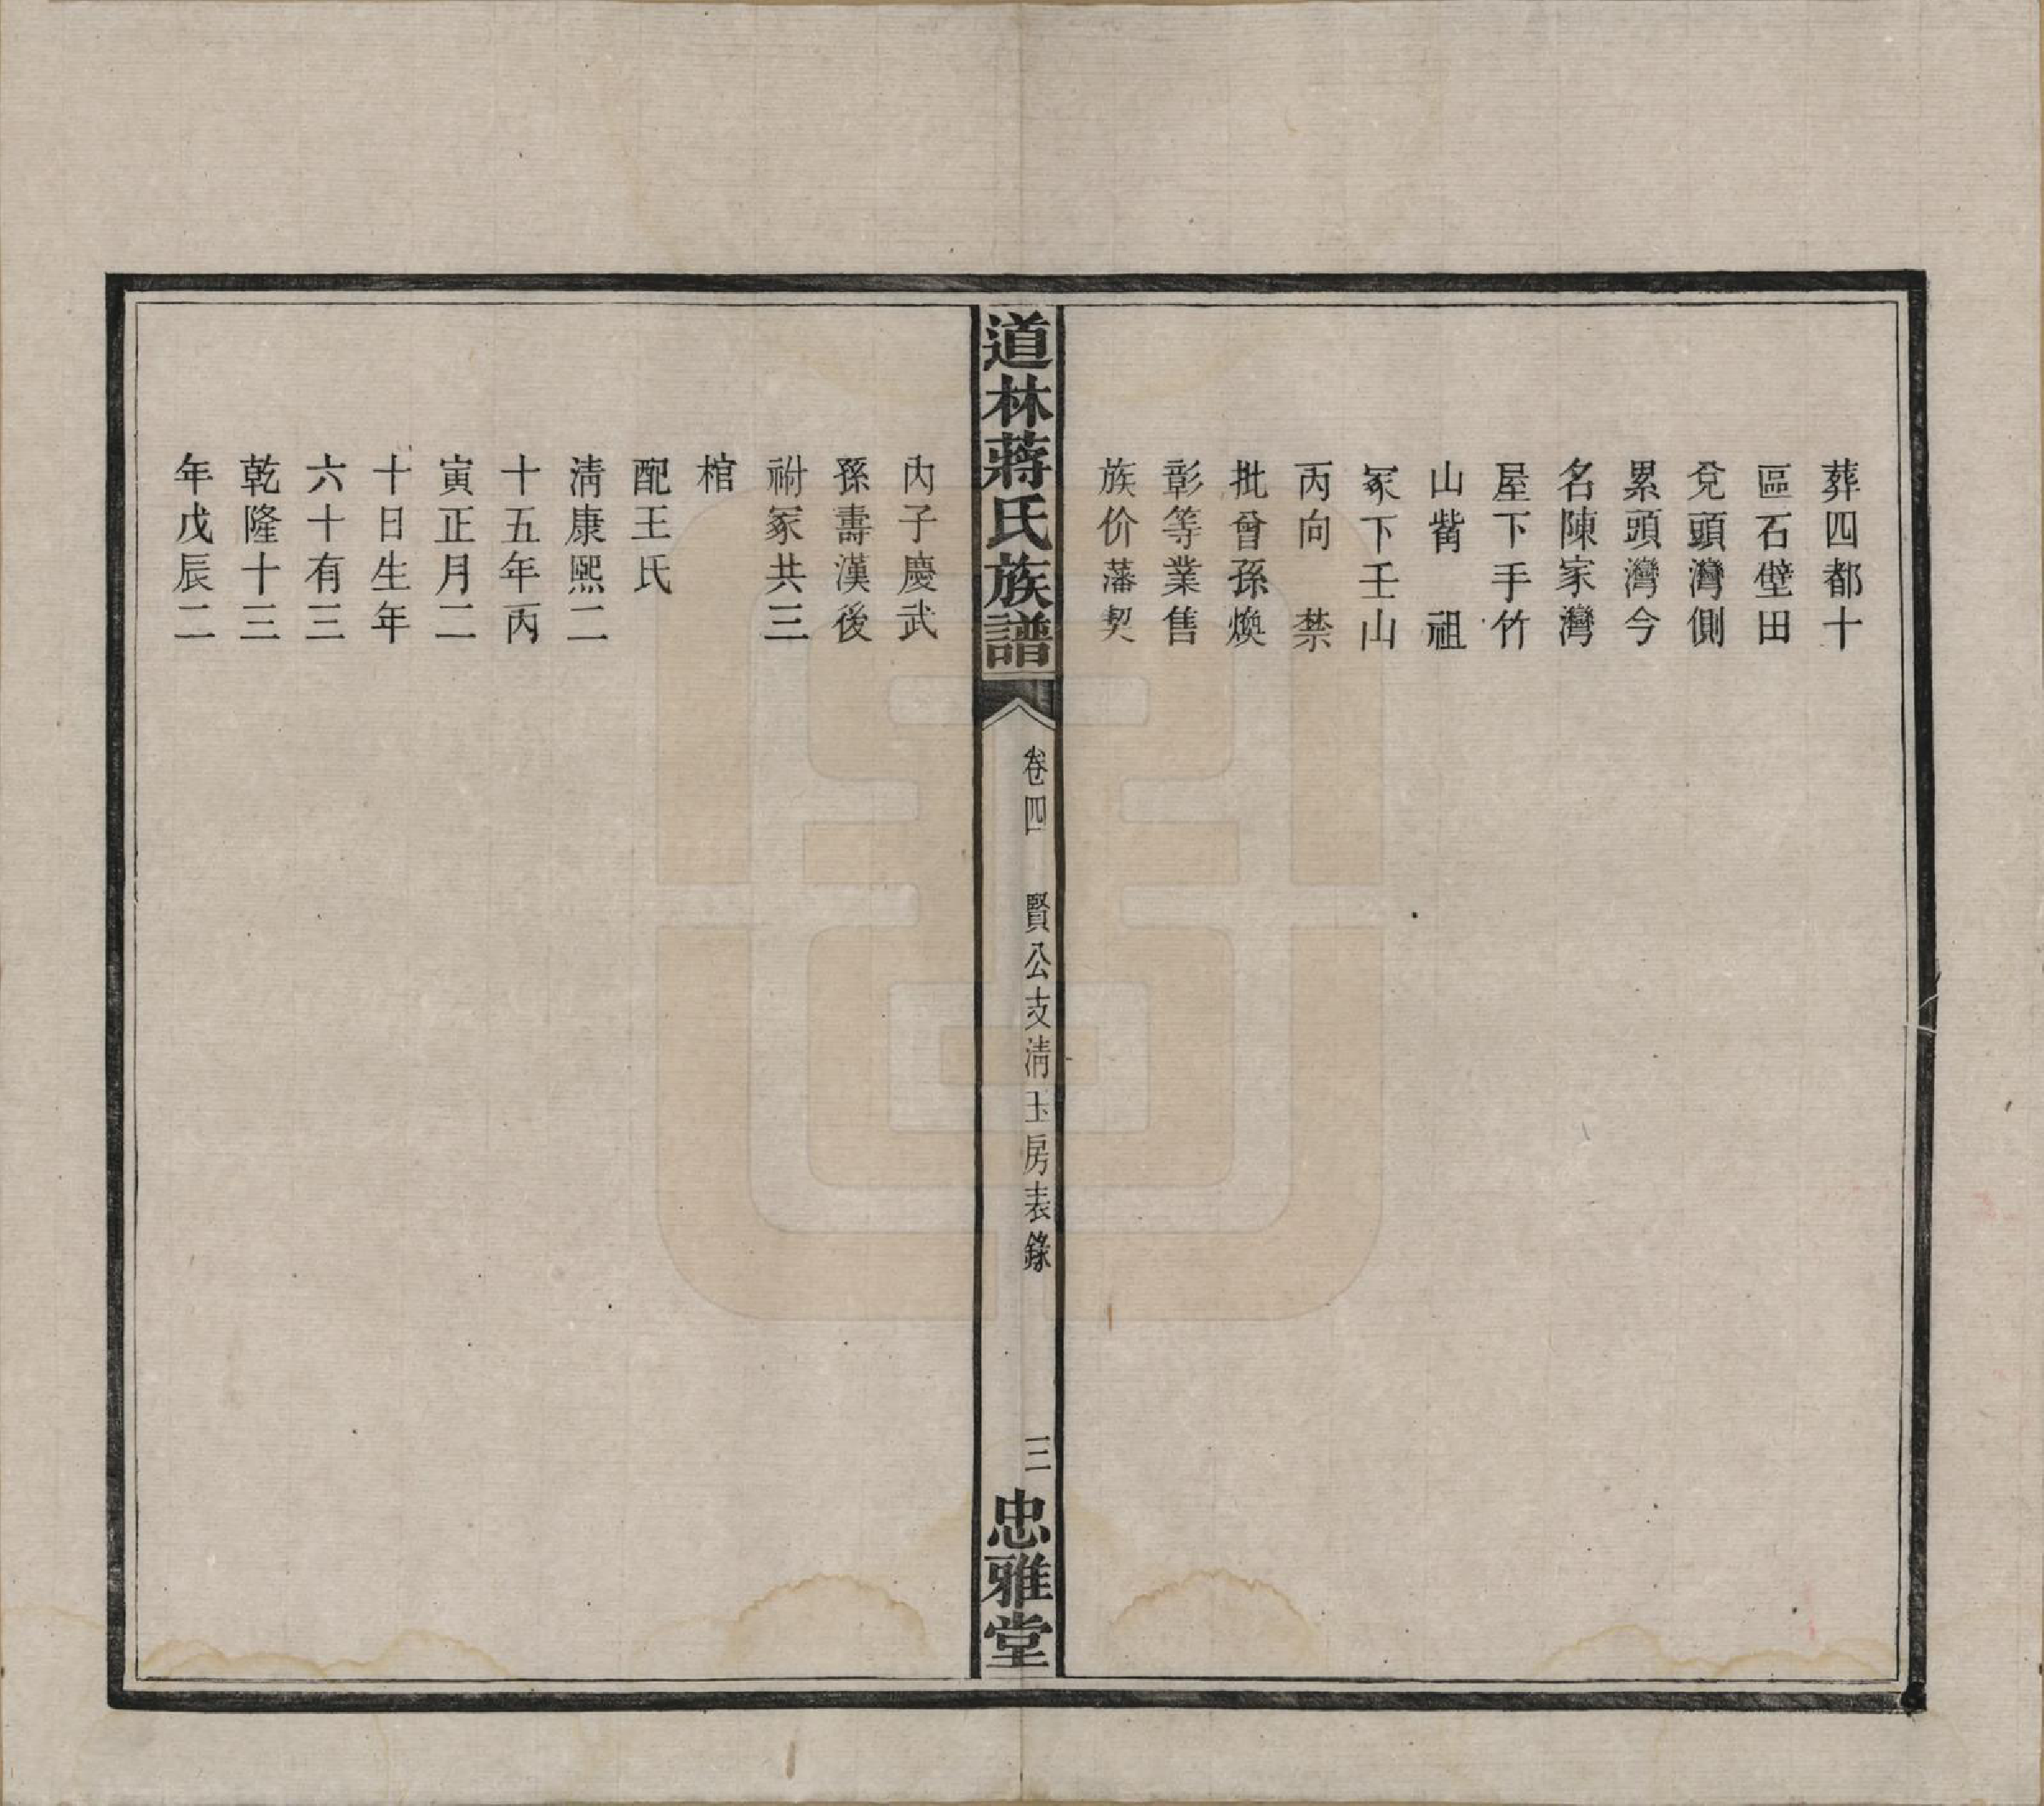 葬四都十
區石壁田
兌頭灣側
累頭灣今
名陳家灣
屋下手竹
山觜　祖
冢下壬山
丙向　禁
批曾孫煥
彰等業售
族价藩契
道林蔣氏族譜
卷四　賢公支清玉房表錄
三
忠雅堂
內子慶武
孫壽漢後
祔冢共三
棺
配王氏
清康熙二
十五年丙
寅正月二
十日生年
六十有三
乾隆十三
年戊辰二